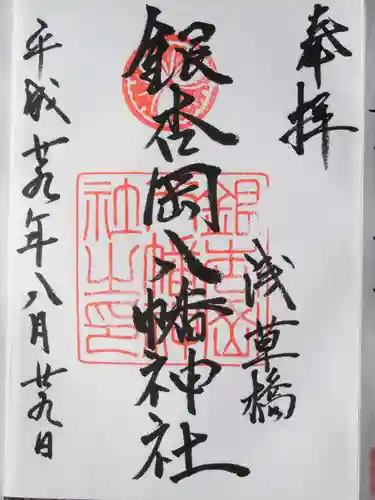 奉拝
浅草橋
銀杏岡八幡神社
平成廿九年八月廿九日
銀杏岡八幡神社之印